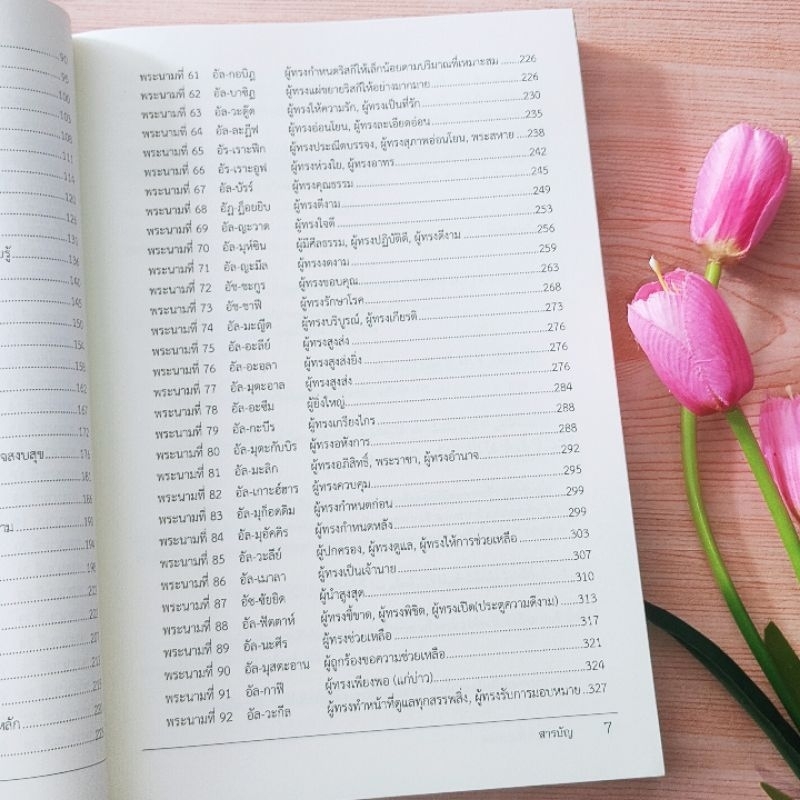 90
95
100
103
108
111
114
120
126
131
บรู้ 136
140
145
150
154
158
162
167
172
จสงบสุข 176
181
186
าม 191
194
198
203
207
211
215
หลัก 220
พระนามที่ 61 อัล-กอบิฎ ผู้ทรงกำหนดริสกีให้เล็กน้อยตามปริมาณที่เหมาะสม 226
พระนามที่ 62 อัล-บาซิฏ ผู้ทรงแผ่ขยายริสกีให้อย่างมากมาย 226
พระนามที่ 63 อัล-วะดู๊ด ผู้ทรงให้ความรัก, ผู้ทรงเป็นที่รัก 230
พระนามที่ 64 อัล-ละฏีฟ ผู้ทรงอ่อนโยน, ผู้ทรงละเอียดอ่อน 235
พระนามที่ 65 อัร-เราะฟีก ผู้ทรงประณีตบรรจง, ผู้ทรงสุภาพอ่อนโยน, พระสหาย 238
พระนามที่ 66 อัร-เราะอูฟ ผู้ทรงห่วงใย, ผู้ทรงอาทร 242
พระนามที่ 67 อัล-บัรร์ ผู้ทรงคุณธรรม 245
พระนามที่ 68 อัฏ-ฏ็อยยิบ ผู้ทรงดีงาม 249
พระนามที่ 69 อัล-ญะวาด ผู้ทรงใจดี 253
พระนามที่ 70 อัล-มุห์ซิน ผู้มีศีลธรรม, ผู้ทรงปฏิบัติดี, ผู้ทรงดีงาม 256
พระนามที่ 71 อัล-ญะมีล ผู้ทรงงดงาม 259
พระนามที่ 72 อัช-ชะกูร ผู้ทรงขอบคุณ 263
พระนามที่ 73 อัช-ชาฟี ผู้ทรงรักษาโรค 268
พระนามที่ 74 อัล-มะญีด ผู้ทรงบริบูรณ์, ผู้ทรงเกียรติ 273
พระนามที่ 75 อัล-อะลีย์ ผู้ทรงสูงส่ง 276
พระนามที่ 76 อัล-อะอลา ผู้ทรงสูงส่งยิ่ง 276
พระนามที่ 77 อัล-มุตะอาล ผู้ทรงสูงส่ง 276
พระนามที่ 78 อัล-อะซีม ผู้ยิ่งใหญ่ 284
พระนามที่ 79 อัล-กะบีร ผู้ทรงเกรียงไกร 288
พระนามที่ 80 อัล-มุตะกับบิร ผู้ทรงอหังการ 288
พระนามที่ 81 อัล-มะลิก ผู้ทรงอภิสิทธิ์, พระราชา, ผู้ทรงอำนาจ 292
พระนามที่ 82 อัล-เกาะฮ์ฮาร ผู้ทรงควบคุม 295
พระนามที่ 83 อัล-มุก็อดดิม ผู้ทรงกำหนดก่อน 299
พระนามที่ 84 อัล-มุอัคคิร ผู้ทรงกำหนดหลัง 299
พระนามที่ 85 อัล-วะลีย์ ผู้ปกครอง, ผู้ทรงดูแล, ผู้ทรงให้การช่วยเหลือ 303
พระนามที่ 86 อัล-เมาลา ผู้ทรงเป็นเจ้านาย 307
พระนามที่ 87 อัซ-ซัยยิด ผู้นำสูงสุด 310
พระนามที่ 88 อัล-ฟัตตาห์ ผู้ทรงชี้ขาด, ผู้ทรงพิชิต, ผู้ทรงเปิด(ประตูความดีงาม) 313
พระนามที่ 89 อัล-นะศีร ผู้ทรงช่วยเหลือ 317
พระนามที่ 90 อัล-มุสตะอาน ผู้ถูกร้องขอความช่วยเหลือ 321
พระนามที่ 91 อัล-กาฟี ผู้ทรงเพียงพอ (แก่บ่าว) 324
พระนามที่ 92 อัล-วะกีล ผู้ทรงทำหน้าที่ดูแลทุกสรรพสิ่ง, ผู้ทรงรับการมอบหมาย 327
สารบัญ 7